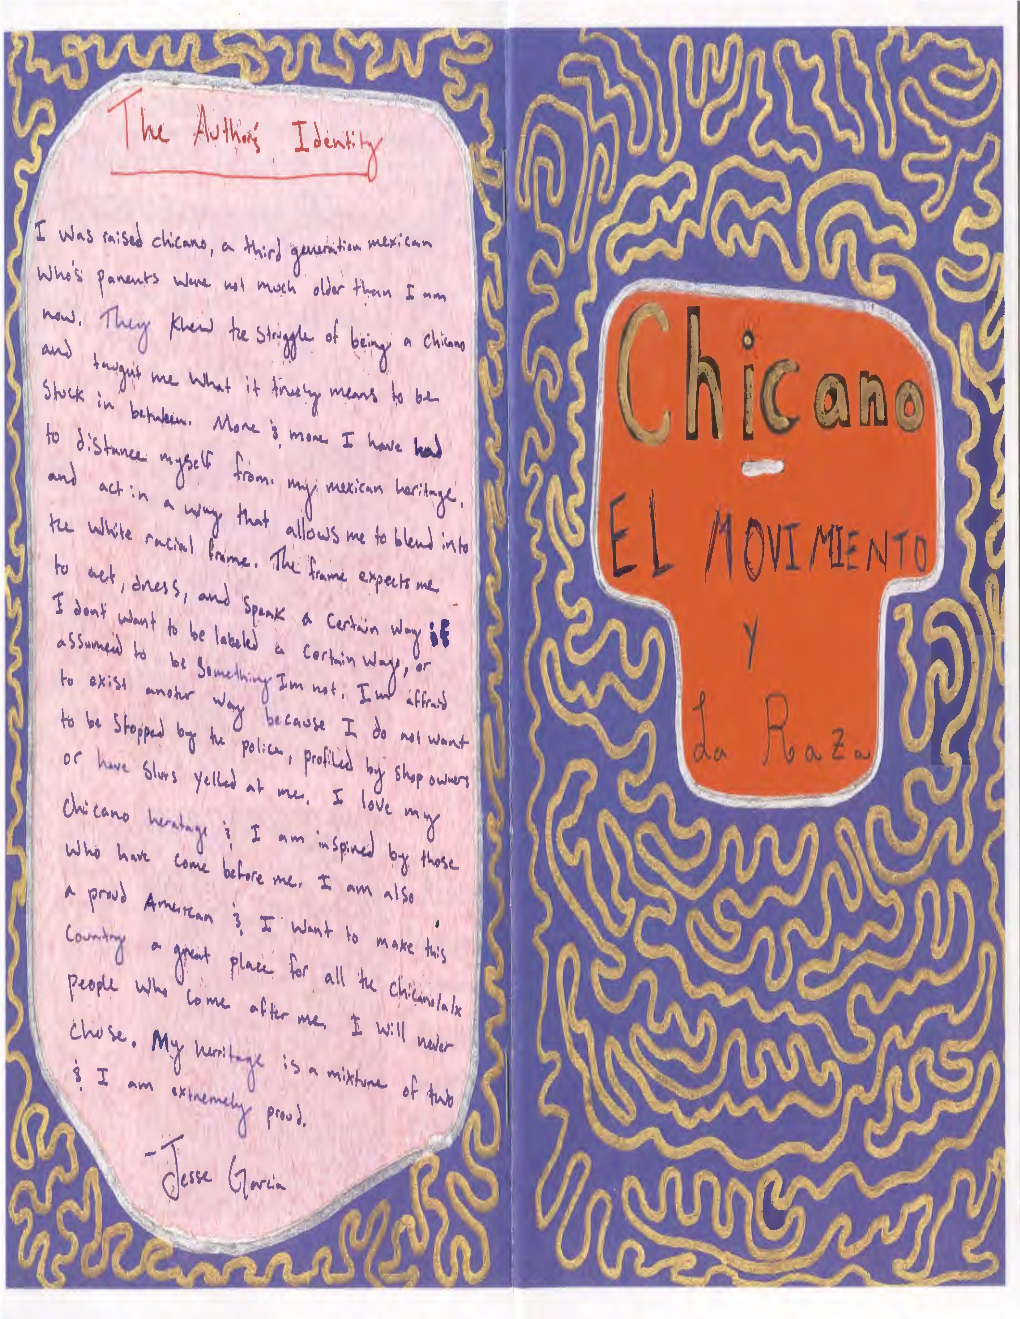 The Author's Identity
I was raised chicano, a third generation mexican
who's parents were not much older than I am
now. They knew the struggle of being a chicano
and taught me what it truely means to be
stuck in between. More & more I have had
to distance myself from my mexican heritage,
and act in a way that allows me to blend into
the white racial frame. The frame expects me
to act, dress, and speak a certain way if
I dont want to be labeled a certain way, or
assumed to be something Im not. Im affraid
to exist another way because I do not want
to be stopped by the police, profiled by shop owners
or have slurs yelled at me. I love my
chicano heratage & I am inspired by those
who have come before me. I am also
a proud American & I want to make this
Country a great place for all the chicano/a/x
people who come after me. I will never
chose. My herritage is a mixture of two
& I am extremely proud.
- Jesse Garcia
Chicano
-
EL MOVIMIENTO
y
La Raza